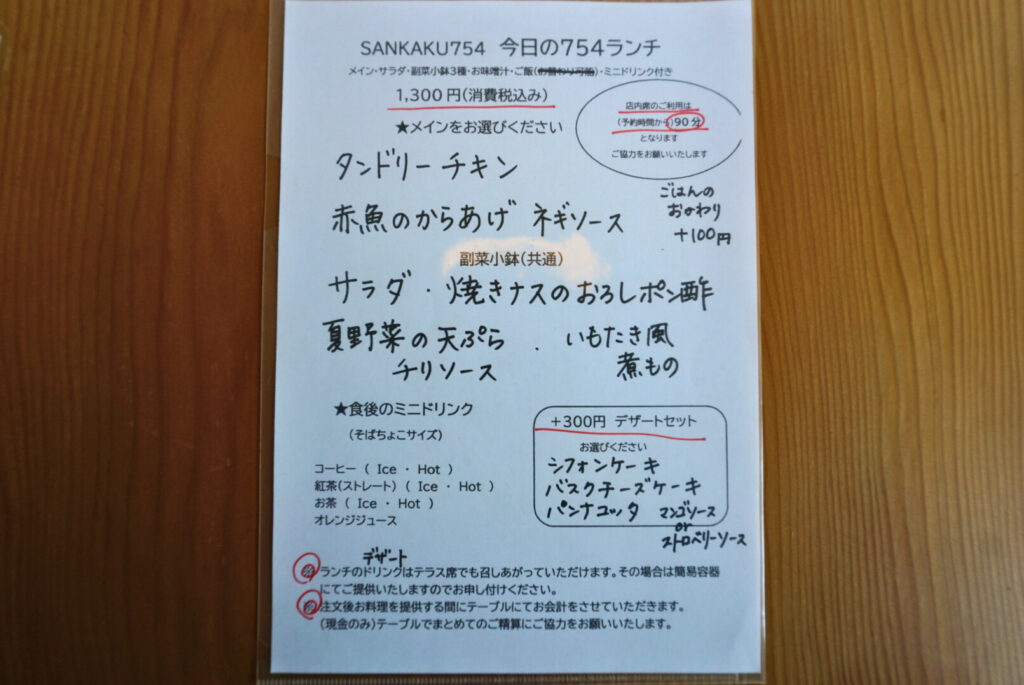 SANKAKU754 今日の754ランチ
メイン・サラダ・副菜小鉢3種・お味噌汁・ご飯(お替わり可能)・ミニドリンク付き
1,300円(消費税込み)
店内席のご利用は
(予約時間から)90分
となります
ご協力をお願いいたします
★メインをお選びください
タンドリーチキン
赤魚のからあげ ネギソース
ごはんの
おかわり
+100円
副菜小鉢(共通)
サラダ・焼きナスのおろしポン酢
夏野菜の天ぷら
チリソース
・いもたき風
煮もの
★食後のミニドリンク
(そばちょこサイズ)
コーヒー ( Ice ・ Hot )
紅茶(ストレート) ( Ice ・ Hot )
お茶 ( Ice ・ Hot )
オレンジジュース
+300円 デザートセット
お選びください
シフォンケーキ
バスクチーズケーキ
パンナコッタ マンゴソース
or
ストロベリーソース
デザート
ランチのドリンクはテラス席でも召しあがっていただけます。その場合は簡易容器
にてご提供いたしますのでお申し付けください。
注文後お料理を提供する間にテーブルにてお会計をさせていただきます。
(現金のみ)テーブルでまとめてのご精算にご協力をお願いいたします。